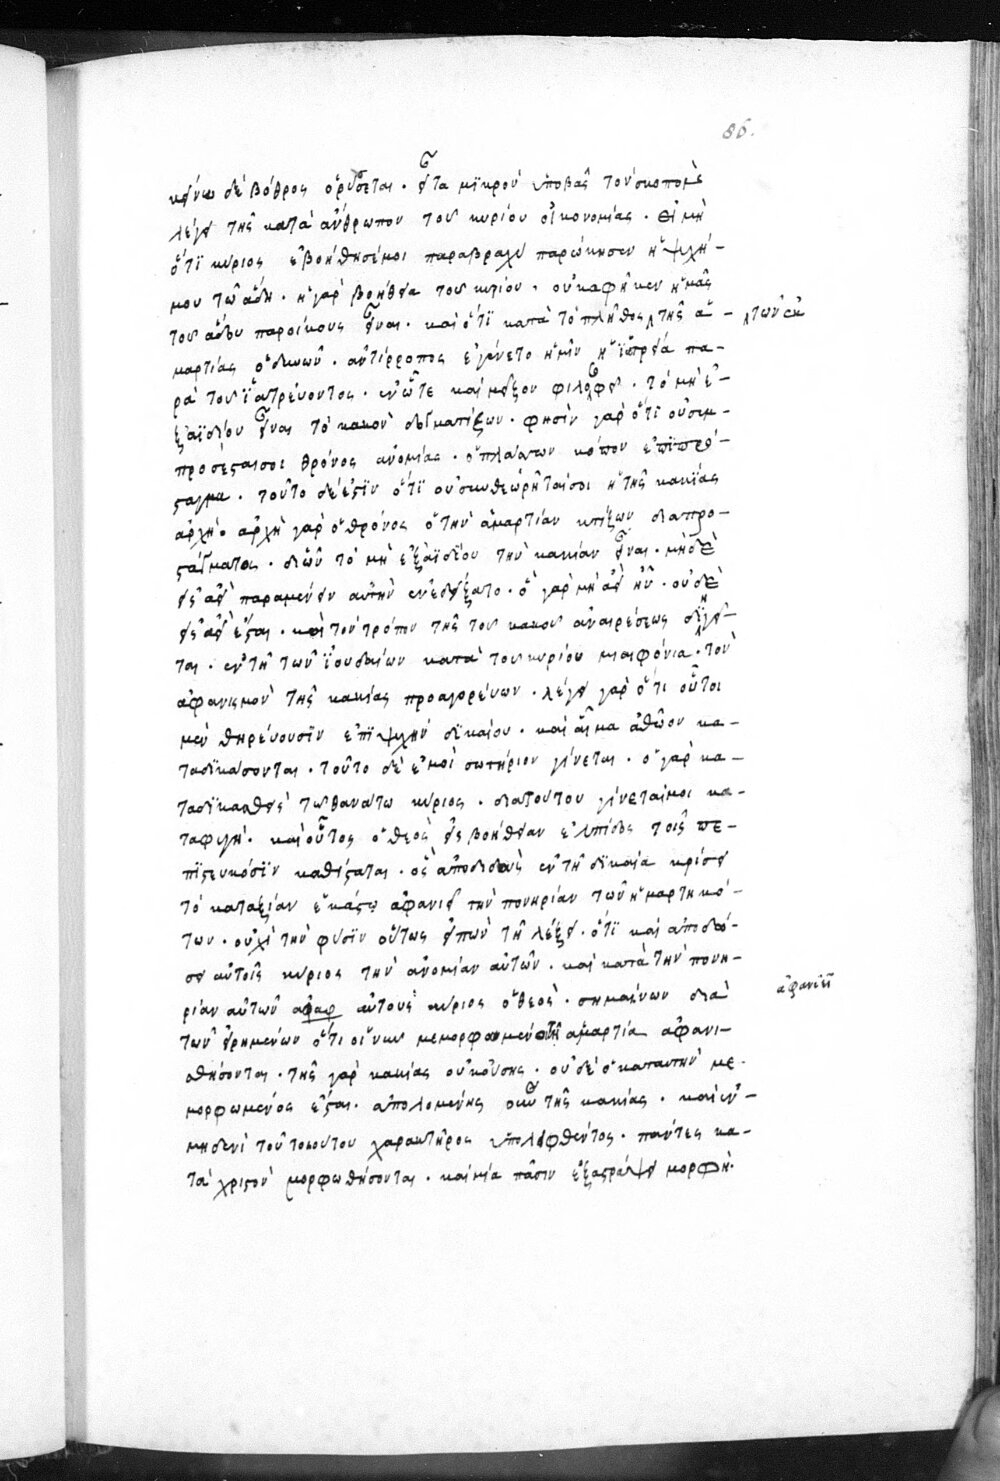 86.
κείνω δὲ βόθρος ὀρύσεται · εἶτα μϊκρὸν ὑποβὰς τὸν σκοπὸν
λέγει τῆς κατὰ ἄνθρωπον τοῦ κυρίου οἰκονομίας · εἰ μὴ
ὅτϊ κύριος ἐβοήθησέμοι παραβραχὺ παρώκησεν ἡ ψυχή-
μου τῶ ἅδη · ἡ γὰρ βοήθεια τοῦ κυρίου · οὐκ ἀφῆκεν ἡμᾶς
τοῦ ἅδου παροίκους εἶναι · καὶ ὅτϊ κατὰ τὸ πλῆθος τῆς ἁ-
τῶν ἐκ
μαρτίας ὀδυνῶν · ἀντίρροπος ἐγένετο ἡμῖν ἡ ἰατρεία πα-
ρὰ τοῦ ἰατρεύοντος · ἐν ὧτε καὶ μεῖζον φιλοσοφεῖ · τὸ μὴ ἐ-
ξαϊδίου εἶναι τὸ κακὸν δογματίζων · φησὶν γὰρ ὅτϊ οὐ συμ-
προσέσται σοι θρόνος ἀνομίας · ὁ πλάσσων κόπον ἐπϊπρό-
σταγμα · τοῦτο δέ ἐστϊν ὅτϊ οὐ συνθεωρῆταί σοι ἡ τῆς κακίας
ἀρχή · ἀρχὴ γὰρ ὁ θρόνος ὁ τὴν ἁμαρτίαν κτίζων διαπρο-
στάγματος · διὼν τὸ μὴ ἐξαϊδίου τὴν κακίαν εἶναι · μὴδὲ
εἰς ἀεὶ παραμένειν αὐτὴν ἐνεδείξατο · ὃ γὰρ μὴ ἀεὶ ἦν · οὐδὲ
εἰς ἀεὶ ἔσται · καὶ τὸν τρόπον τῆς τοῦ κακοῦ ἀναιρέσεως διηγεῖ-
ται · ἐν τῆ τῶν ἰουδαίων κατὰ τοῦ κυρίου μιαιφονία · τὸν
ἀφανισμὸν τῆς κακίας προαγορεύων · λέγει γὰρ ὅτι οὗτοι
μὲν θηρεύουσϊν ἐπϊ ψυχὴν δϊκαίου · καὶ αἷμα ἀθῶον κα-
ταδϊκάσονται · τοῦτο δὲ ἐμοὶ σωτήριον γίνεται · ὁ γὰρ κα-
ταδϊκασθεὶς τῶ θανάτω κύριος · διατούτου γίνεταί μοι κα-
ταφυγή · καὶ οὗτος ὁ θεὸς εἰς βοήθειαν ἐλπίδος τοῖς πε-
πϊστευκόσϊν καθίσταται · ὃς ἀποδιδοὺς ἐν τῆ δϊκαία κρίσει
τὸ καταξίαν ἑκάστω ἀφανιεῖ τὴν πονηρίαν τῶν ἡμαρτηκό-
των · οὐχὶ τὴν φύσϊν οὕτως εἰπὼν τῆ λέξει · ὅτϊ καὶ ἀποδώ-
σει αὐτοῖς κύριος τὴν ἀνομίαν αὐτῶν · καὶ κατὰ τὴν πονη-
ρίαν αὐτῶν αὐτοὺς κύριος ὁ θεός · σημαίνων διὰ
ἀφανιεῖ
τῶν εἰρημένων ὅτι οἱ νῦν μεμορφωμένοι τῆ ἁμαρτία ἀφανι-
σθήσονται · τῆς γὰρ κακίας οὐκ οὔσης · οὐδὲ ὁ κατ αυτὴν με-
μορφωμένος ἔσται · ἀπολομένης οὖν τῆς κακίας · καὶ ἐν-
μηδενὶ τοῦ τοιούτου χαρακτῆρος ὑπολειφθέντος · πάντες κα-
τὰ χριστὸν μορφωθήσονται · καὶ μία πᾶσιν ἐξαστράψει μορφή ·